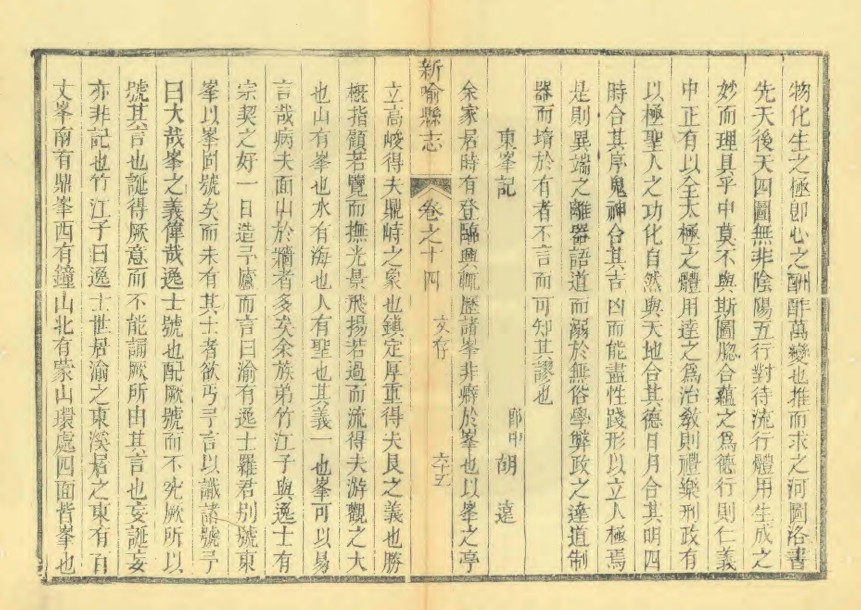 物化生之極卽心之酬酢萬變也推而求之河圖洛書
先天後天四圖無非陰陽五行對待流行體用生成之
妙而理具乎中莫不與斯圖脗合蘊之爲德行則仁義
中正有以全太極之體用達之爲治敎則禮樂刑政有
以極聖人之功化自然與天地合其德日月合其明四
時合其序鬼神合其吉凶而能盡性踐形以立人極焉
是則異端之離器語道而溺於無俗學弊政之違道制
器而墮於有者不言而可知其謬也
東峯記
郎中 胡 遠
余家居時有登臨興輒歷諸峯非癖於峯也以峯之亭
立高峻得夫鼎峙之象也鎮定厚重得夫艮之義也勝
槪指顧若覽而撫光景飛揚若過而流得夫游觀之大
也山有峯也水有海也人有聖也其義一也峯可以易
言哉病夫面山於牆者多矣余族弟竹江子與逸士有
宗契之好一日造予廬而言曰渝有逸士羅君別號東
峯以峯固號矣而未有其士者欲丐予言以識諸號予
曰大哉峯之義偉哉逸士號也配厥號而不究厥所以
號其言也誕得厥意而不能誦厥所由其言也妄誕妄
亦非記也竹江子曰逸士世居渝之東溪居之東有百
丈峯南有鼎峯西有鐘山北有蒙山環處四面皆峯也
新喻縣志
卷之十四
文存
六十五